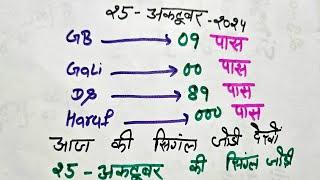 25-अकटूबर-2024
GB → 09 पास
Gali → 00 पास
DS → 89 पास
Haruf → 000 पास
आज की सिगंल जोडी देखों
25-अकटूबर की सिगंल जोडी